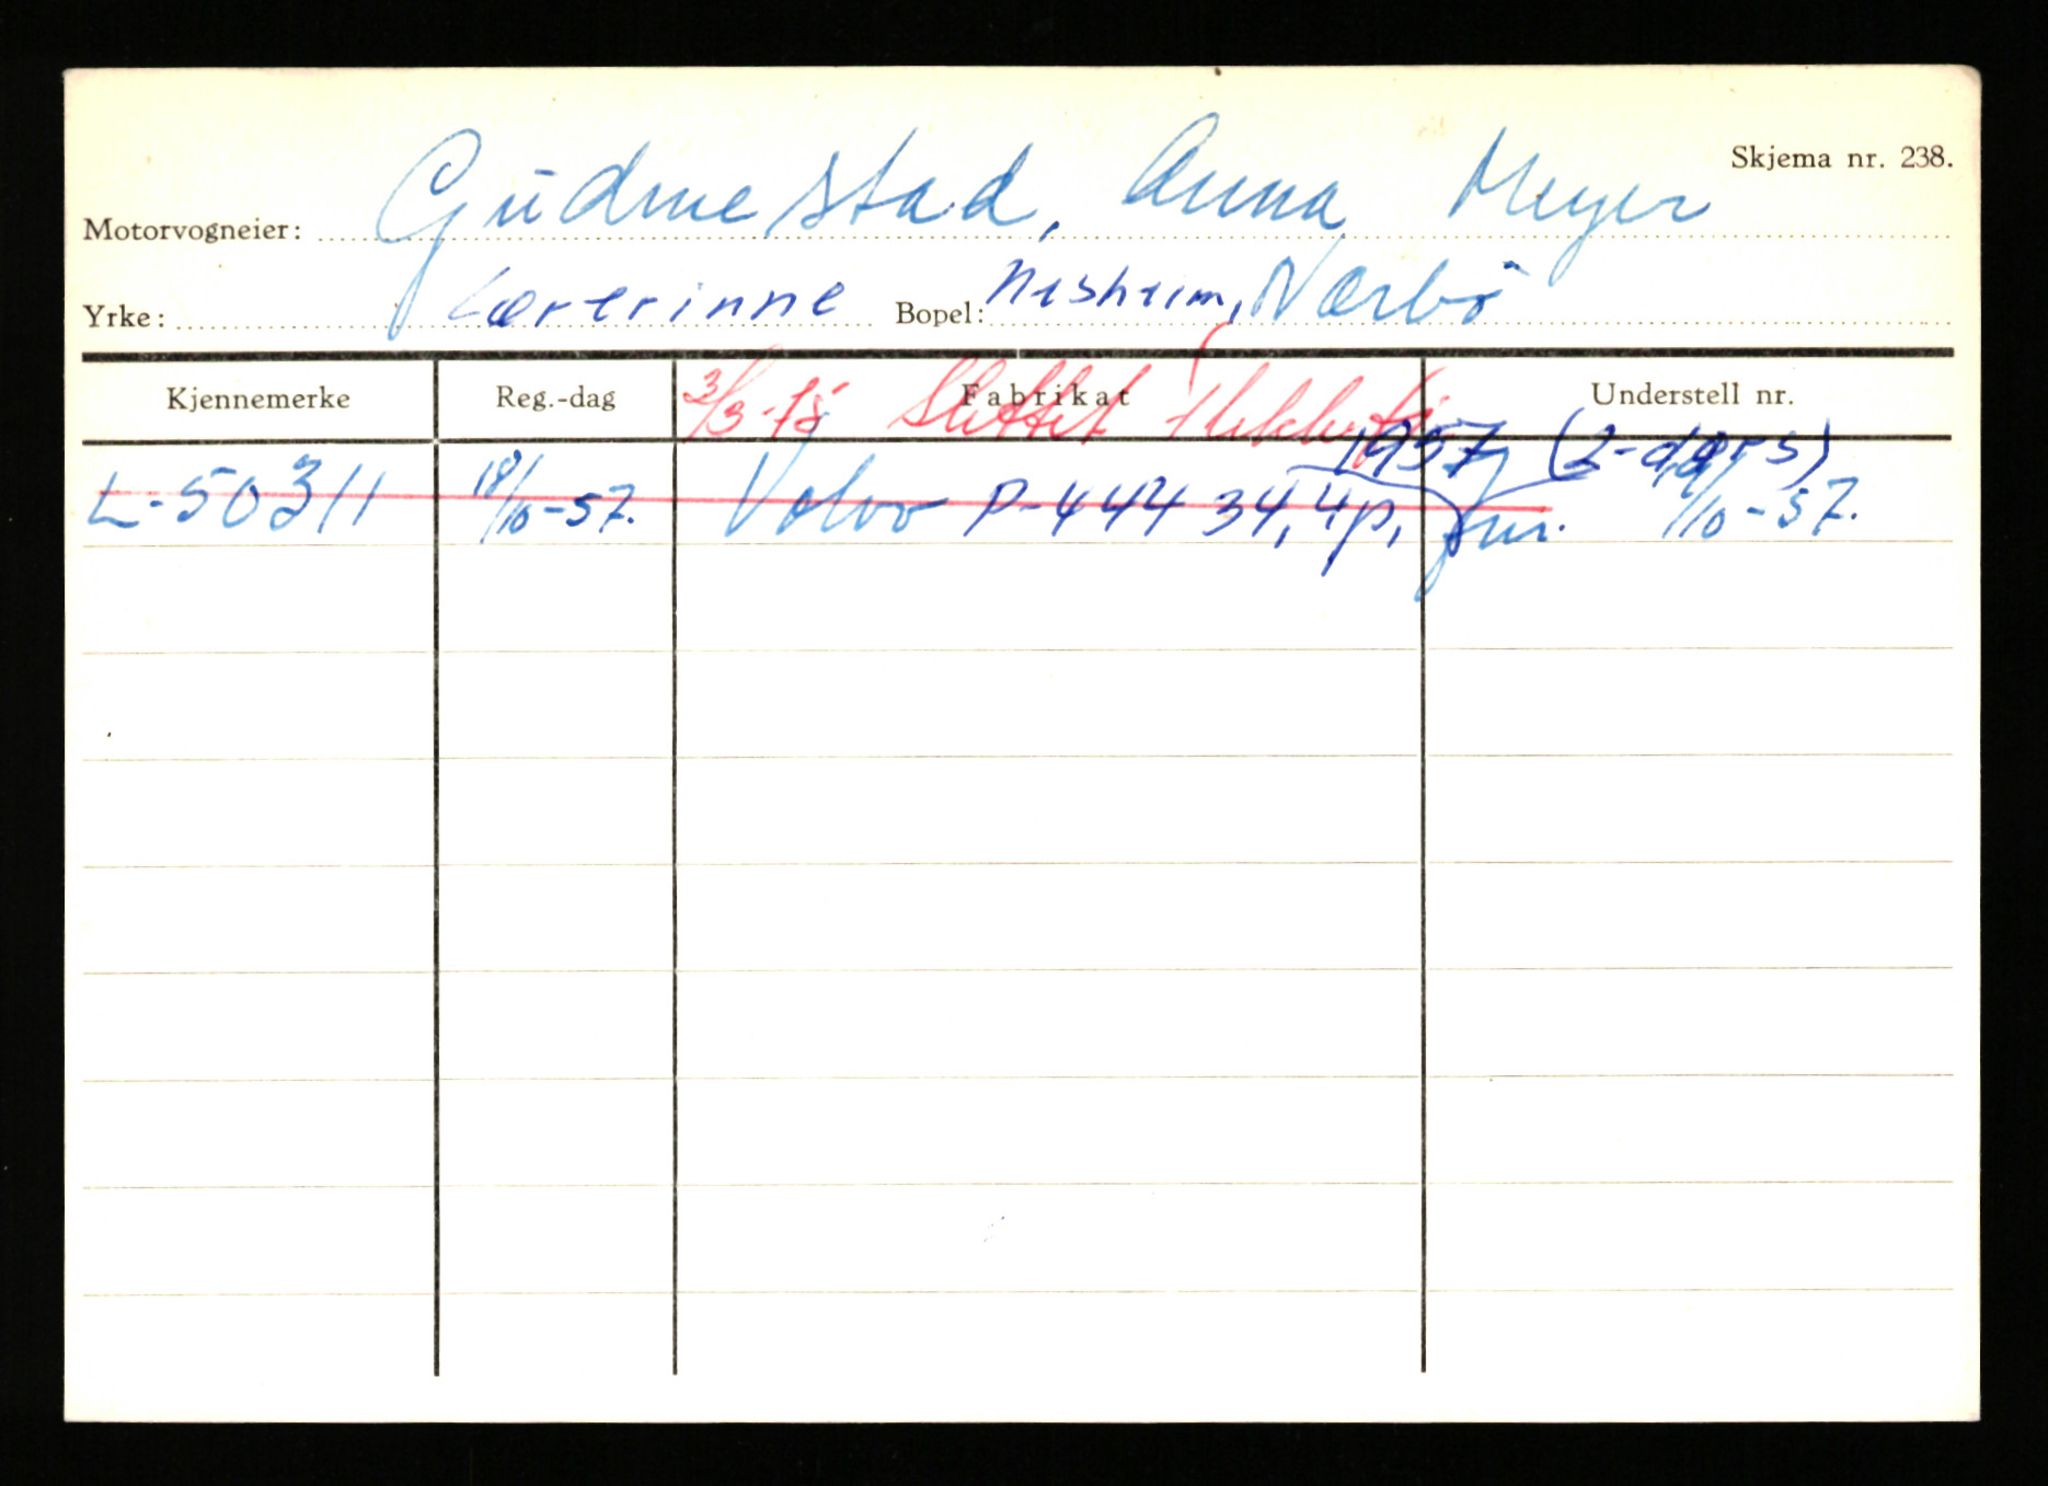 Skjema nr. 238.
Motorvogneier: Gudmestad, Anna Meyer
Yrke: Lærerinne Bopel: Nesheim, Nærbö
Kjennemerke Reg.-dag Fabrikat Understell nr.
3/3-75 Slettet
1957 (2-dørs)
L-50311 18/10-57. Volvo P-444 34, 4p, fnr. 18/10-57.